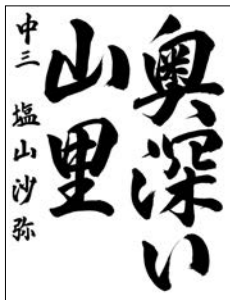 奥深い
山里
中三 塩山沙弥